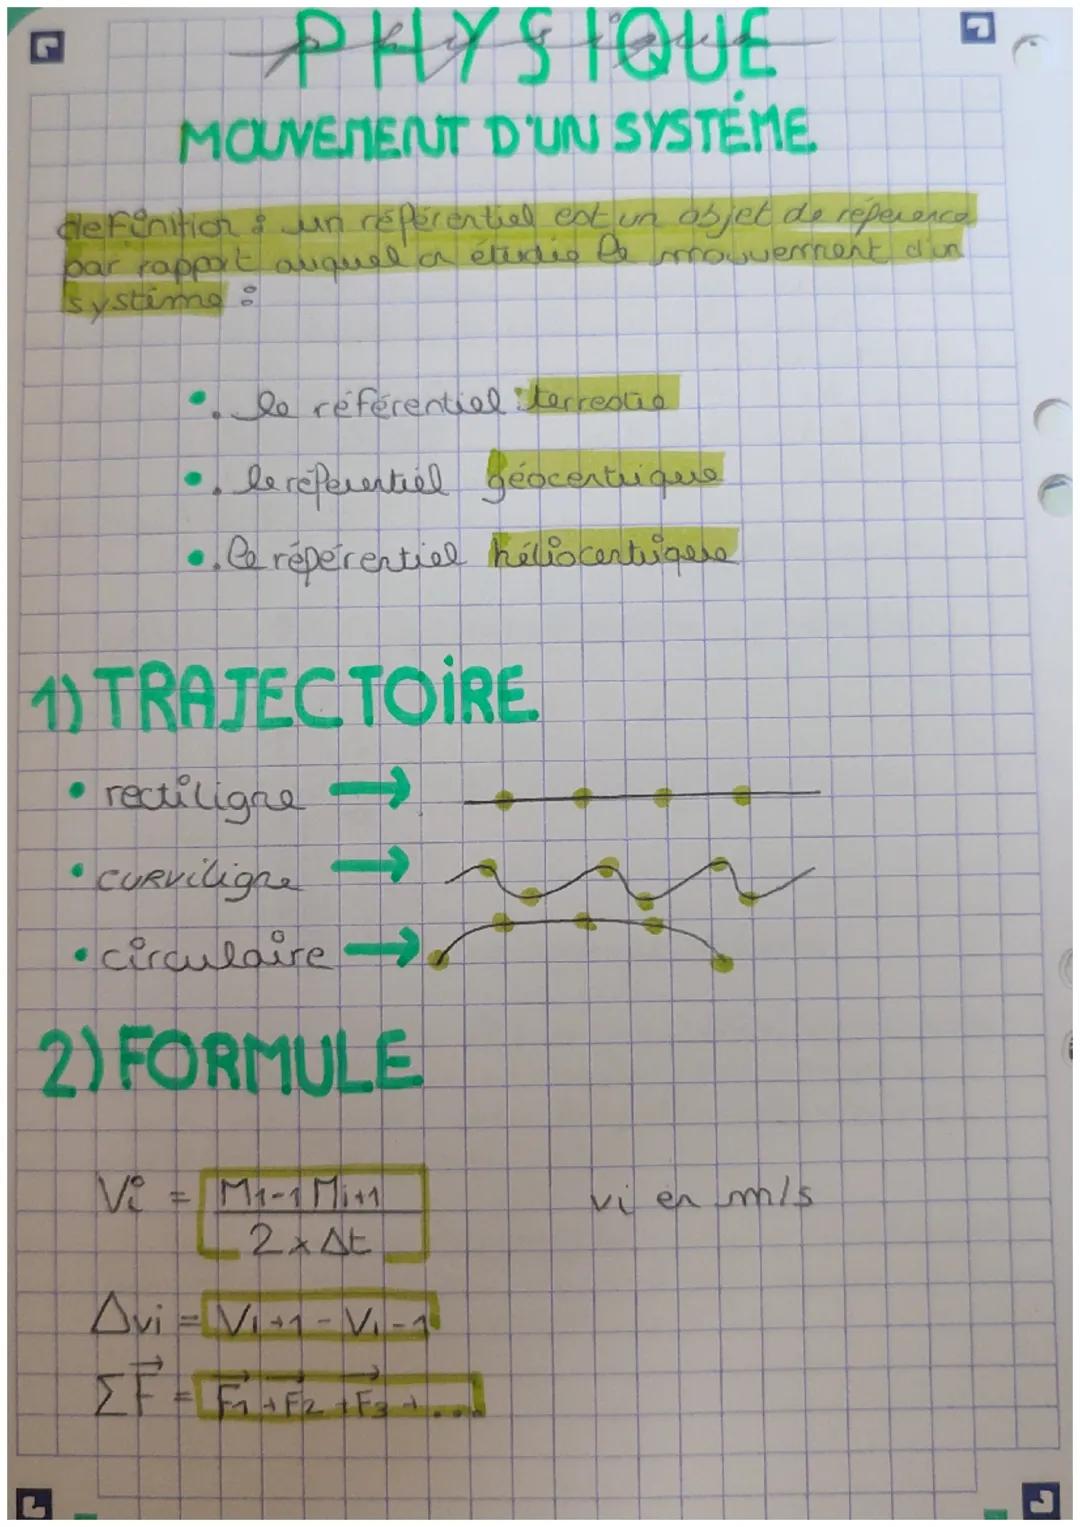 PHYSIQUE
MOUVEMENT D'UN SYSTÉME
definition : un référentiel est un objet de réference
par rapport auquel on étudie le mouvement d'un
systéme :
. le référentiel : terrestre
. le référentiel géocentrique
. le référentiel héliocentrique
1) TRAJECTOIRE
• rectiligne →
• curviligne →
• circulaire →
2) FORMULE
Vi = M1-1 Mi+1 vi en m/s
2 x Δt
Δvi = Vi+1 - Vi-1
Σ F⃗ = F⃗1 + F⃗2 + F⃗3 + ...